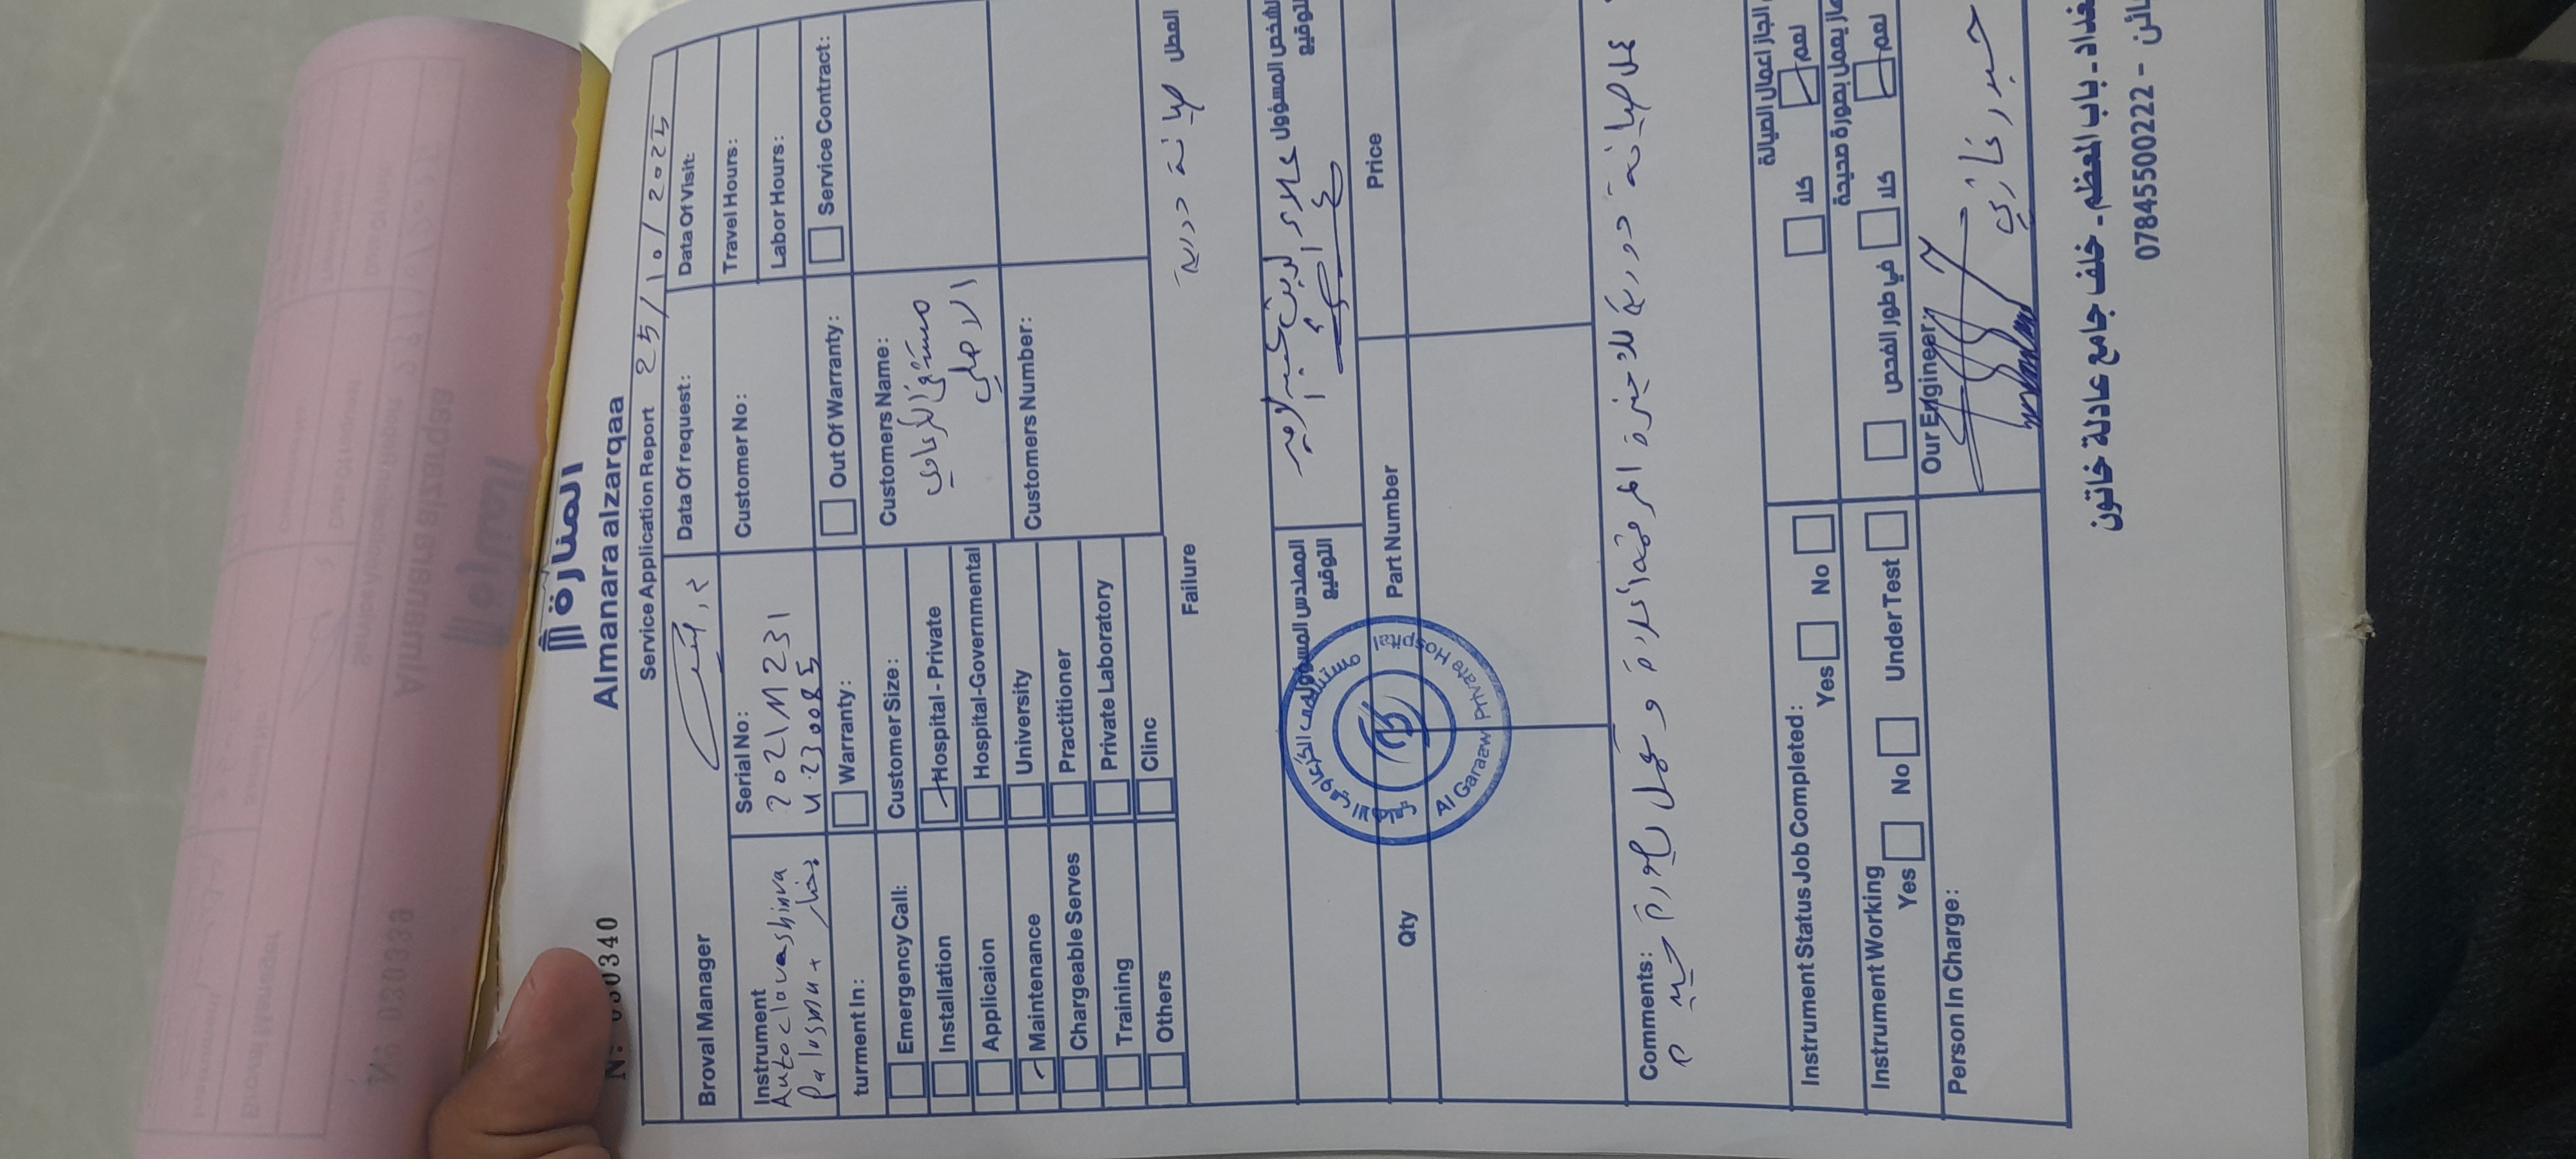 المنارة
Almanara alzarqaa
Nº 030340
Service Application Report 25/10/2025
Broval Manager
Data Of request:
Data Of Visit:
Instrument
Serial No:
2021M231
Customer No:
Travel Hours:
Labor Hours:
turment In:
Warranty:
Out Of Warranty:
Service Contract:
Emergency Call:
Installation
Applicaion
Maintenance
Chargeable Serves
Training
Others
Customer Size:
Hospital - Private
Hospital-Governmental
University
Practitioner
Private Laboratory
Clinc
Customers Name:
مستشفى الكرعاوي
الاهلي
Customers Number:
Failure
العطل صيانة دورية
المهندس المسؤول
التوقيع
الشخص المسؤول علاء
التوقيع
مستشفى الكرعاوي الاهلي
Al Garaawi Private Hospital
Qty
Part Number
Price
Comments:
عمل صيانة دورية للاجهزة المرفقة اعلاه وتعمل بصورة
جيدة
Instrument Status Job Completed:
Yes No
كلا نعم
Instrument Working
Yes No Under Test
في طور الفحص كلا نعم
Person In Charge:
Our Engineer:
حيدر غازي
بغداد - باب المعظم - خلف جامع عادلة خاتون
07845500222 -